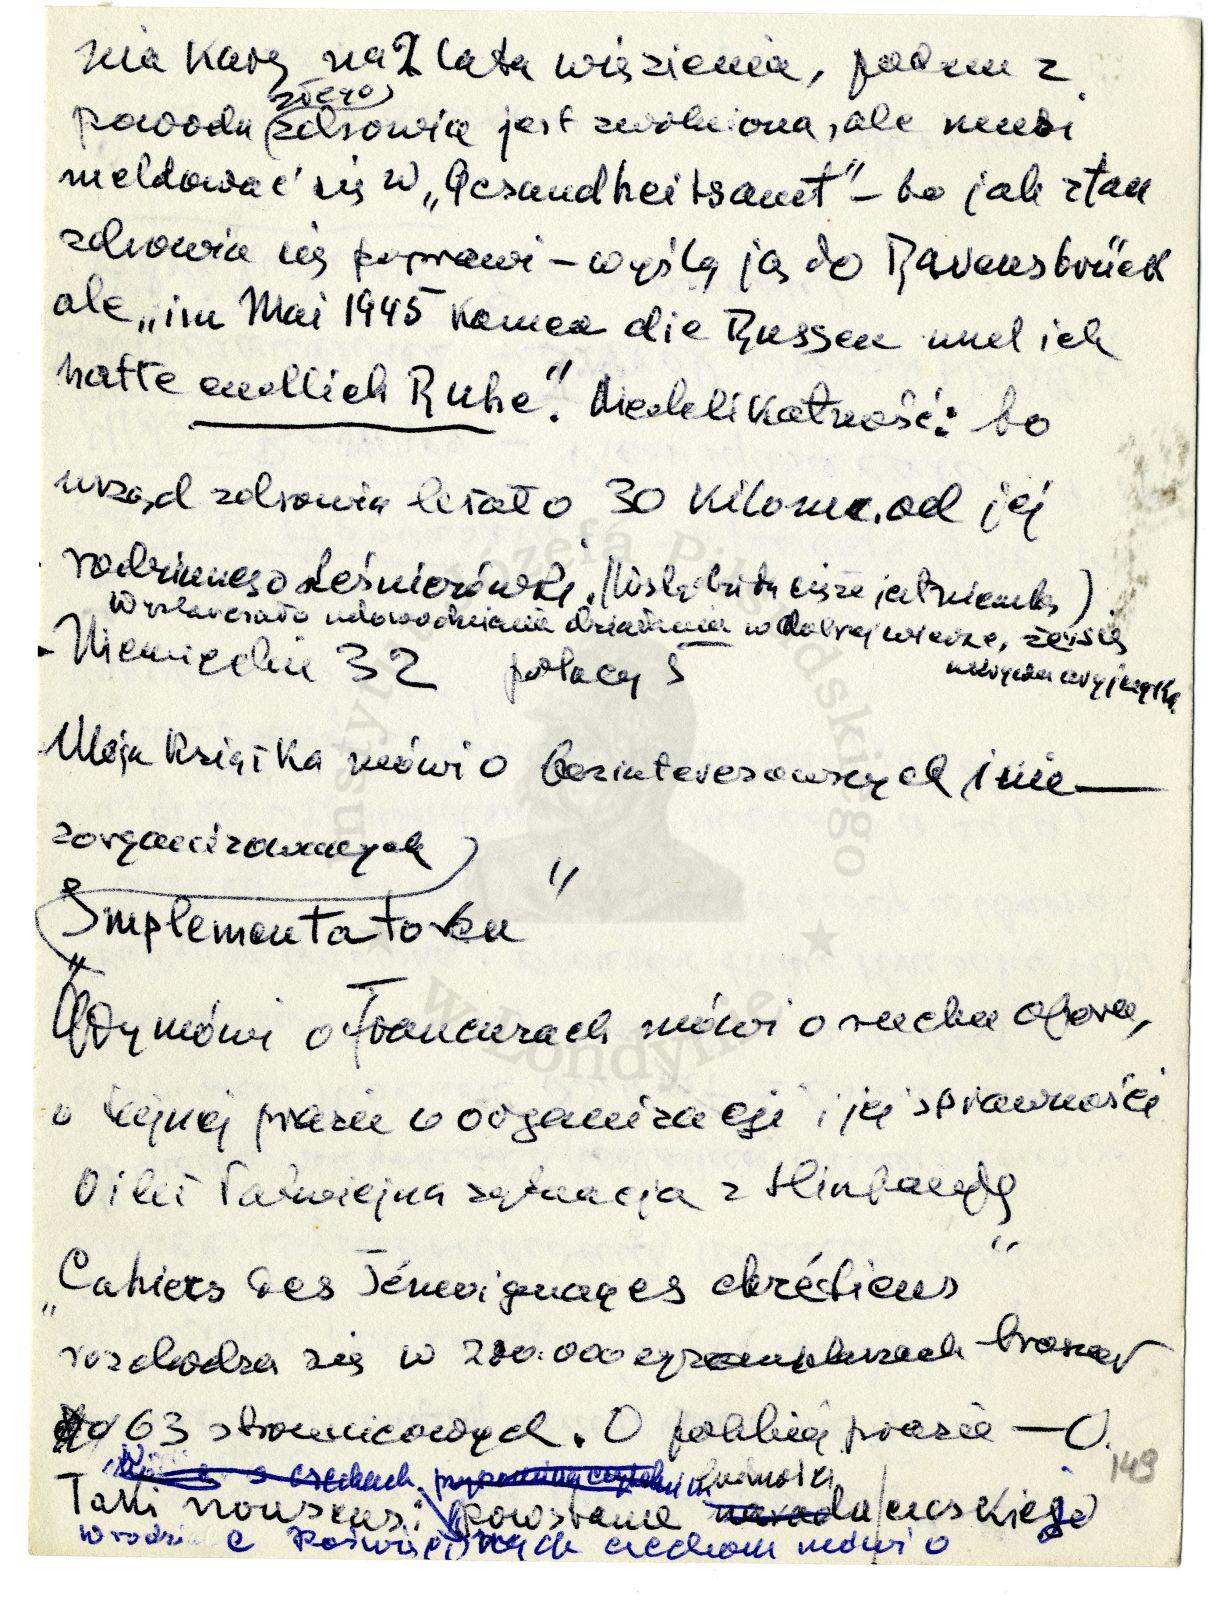 nia kary na 2 lata więzienia, potem z
złego
powodu zdrowia jest zwolniona, ale musi
meldować się w „Gesundheitsamt" – bo jak stan
zdrowia się poprawi – wyślą ją do Ravensbrück
ale „im Mai 1945 kamen die Russen und ich
hatte endlich Ruhe". Niedelikatność: bo
urząd zdrowia leżał o 30 kilom. od jej
rodzinnego Leśniczówki.
udowodnienie działania w dobrej wierze,
Niemieckiej 32 polacy 5
Moja książka mówi o bezinteresownych i nie—
zorganizowanych
„Implementatorzy"
Gdy mówi o Francuzach mówi o ruchu oporu,
o tajnej prasie o organizacji i jej sprawności
O ileż łatwiejsza sytuacja z
„Cahiers des Témoignages chrétiens"
rozchodzą się w 200.000 egzemplarzach broszur
63 stronicowych. O polskiej prasie – O.
149
o czechach
ludności
Taki nonsens: powstanie
czechom mówi o
Instytut Józefa Piłsudskiego
w Londynie